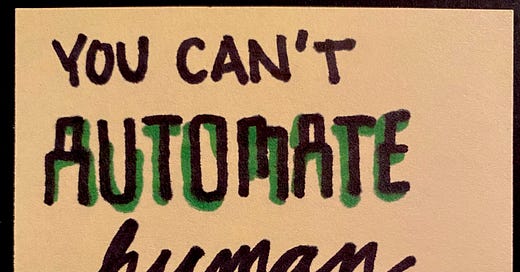 YOU CAN'T
AUTOMATE
human